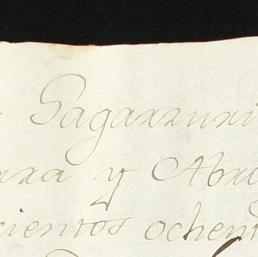 Sagarzuri
ara y Abri
cientos ochent